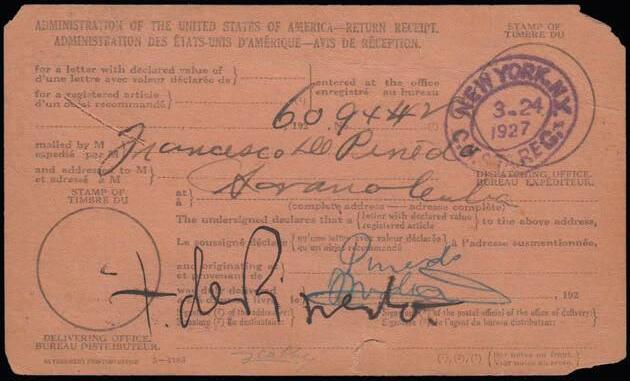 ADMINISTRATION OF THE UNITED STATES OF AMERICA—RETURN RECEIPT.
ADMINISTRATION DES ÉTATS-UNIS D'AMÉRIQUE—AVIS DE RÉCEPTION.
STAMP OF
TIMBRE DU
for a letter with declared value of
d'une lettre avec valeur déclarée de
entered at the office
enregistré au bureau
for a registered article
d'un objet recommandé
609442
, 192
NEW YORK, N.Y.
3-24
1927
mailed by M
expédié par M
Francesco de Pined
and addressed to M
et adressé à M
DISPATCHING OFFICE.
BUREAU EXPÉDITEUR.
STAMP OF
TIMBRE DU
at
à
Cuba
(complete address — adresse complète)
The undersigned declares that a
(letter with declared value)
(registered article)
to the above address,
Le soussigné déclare
qu'une lettre avec valeur déclarée
à l'adresse susmentionnée,
and originating at
et provenant de
Pinedo
was duly delivered
, 192
F. de Pinedo.
Signature of the addressee
du destinataire:
Signature of the postal official of the office of delivery:
de l'agent du bureau distributeur:
DELIVERING OFFICE.
BUREAU DISTRIBUTEUR.
GOVERNMENT PRINTING OFFICE
See notes on front.